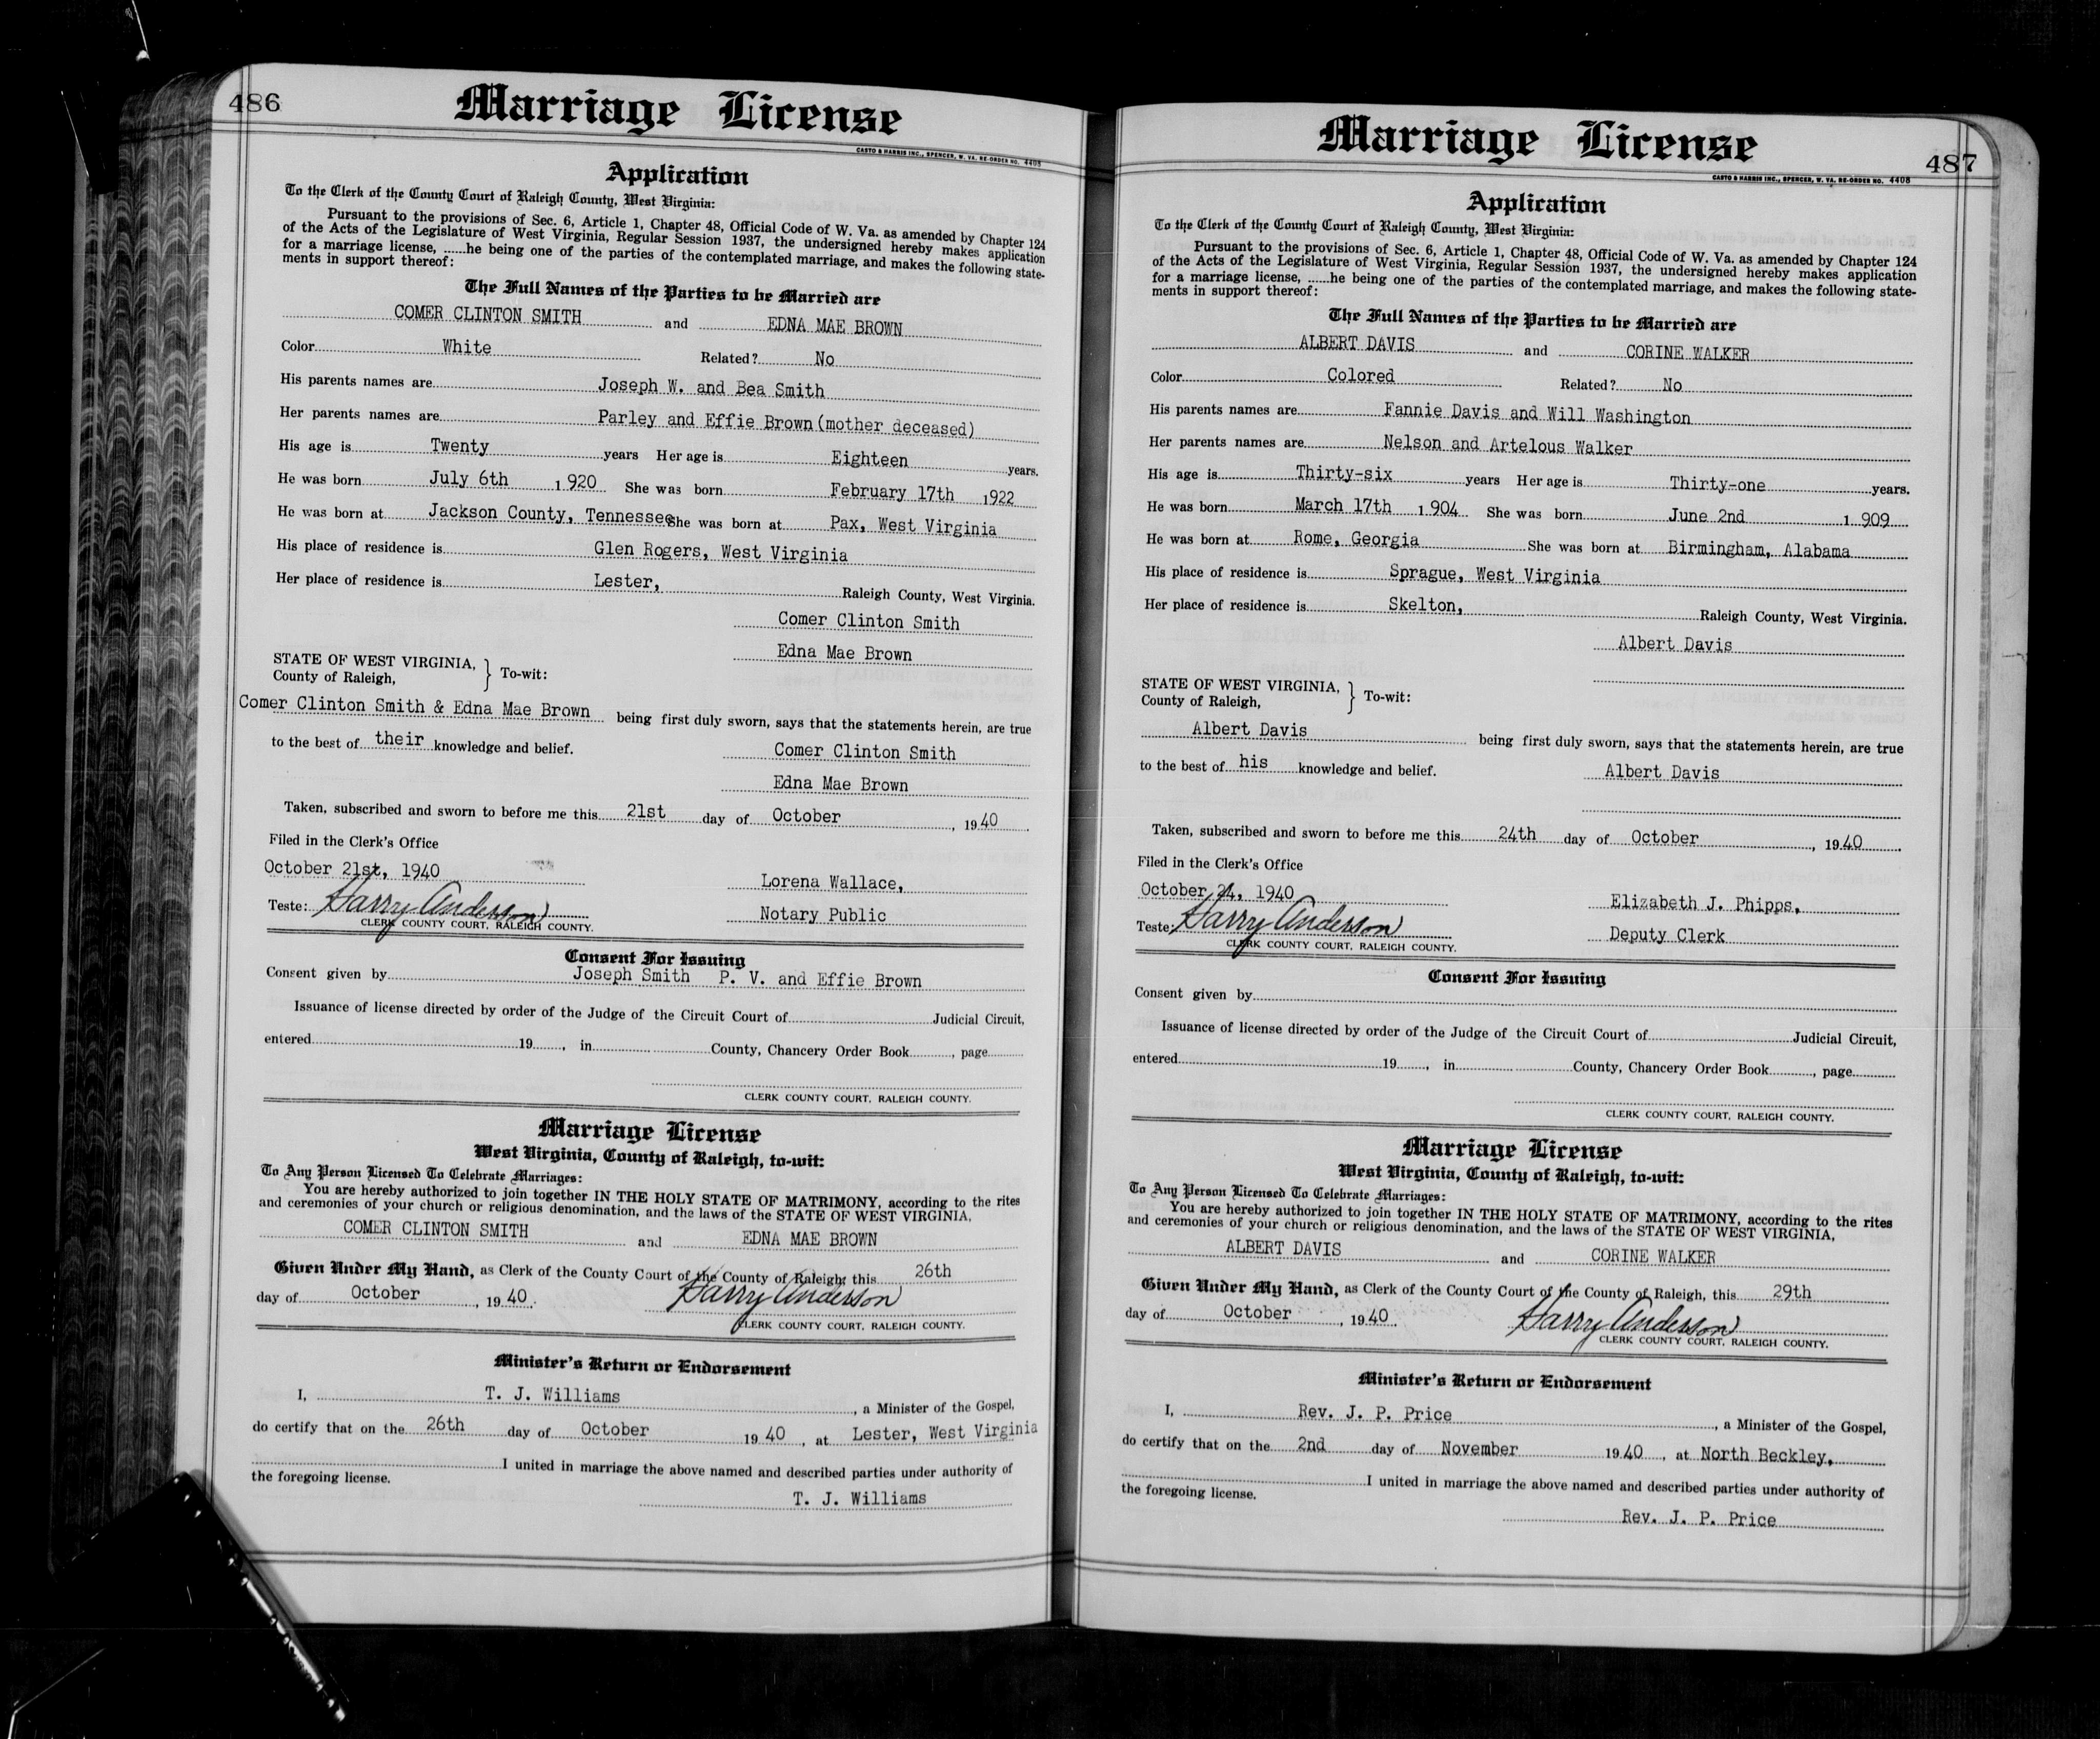 486
Marriage License
CASTO & HARRIS INC., SPENCER, W. VA. RE-ORDER NO. 4408
Application
To the Clerk of the County Court of Raleigh County, West Virginia:
Pursuant to the provisions of Sec. 6, Article 1, Chapter 48, Official Code of W. Va. as amended by Chapter 124
of the Acts of the Legislature of West Virginia, Regular Session 1937, the undersigned hereby makes application
for a marriage license, ......he being one of the parties of the contemplated marriage, and makes the following state-
ments in support thereof:
The Full Names of the Parties to be Married are
COMER CLINTON SMITH and EDNA MAE BROWN
Color White Related? No
His parents names are Joseph W. and Bea Smith
Her parents names are Parley and Effie Brown (mother deceased)
His age is Twenty years Her age is Eighteen years.
He was born July 6th 1 920 She was born February 17th 1922
He was born at Jackson County, Tennessee She was born at Pax, West Virginia
His place of residence is Glen Rogers, West Virginia
Her place of residence is Lester, Raleigh County, West Virginia.
Comer Clinton Smith
Edna Mae Brown
STATE OF WEST VIRGINIA, } To-wit:
County of Raleigh,
Comer Clinton Smith & Edna Mae Brown being first duly sworn, says that the statements herein, are true
to the best of their knowledge and belief. Comer Clinton Smith
Edna Mae Brown
Taken, subscribed and sworn to before me this 21st day of October, 19 40
Filed in the Clerk's Office
October 21st, 1940 Lorena Wallace,
Teste: Harry Anderson Notary Public
CLERK COUNTY COURT, RALEIGH COUNTY.
Consent For Issuing
Consent given by Joseph Smith P. V. and Effie Brown
Issuance of license directed by order of the Judge of the Circuit Court of Judicial Circuit,
entered 19......, in County, Chancery Order Book, page
CLERK COUNTY COURT, RALEIGH COUNTY.
Marriage License
West Virginia, County of Raleigh, to-wit:
To Any Person Licensed To Celebrate Marriages:
You are hereby authorized to join together IN THE HOLY STATE OF MATRIMONY, according to the rites
and ceremonies of your church or religious denomination, and the laws of the STATE OF WEST VIRGINIA,
COMER CLINTON SMITH and EDNA MAE BROWN
Given Under My Hand, as Clerk of the County Court of the County of Raleigh, this 26th
day of October, 19 40. Harry Anderson
CLERK COUNTY COURT, RALEIGH COUNTY.
Minister's Return or Endorsement
I, T. J. Williams, a Minister of the Gospel,
do certify that on the 26th day of October 19 40, at Lester, West Virginia
I united in marriage the above named and described parties under authority of
the foregoing license.
T. J. Williams
487
Marriage License
CASTO & HARRIS INC., SPENCER, W. VA. RE-ORDER NO. 4408
Application
To the Clerk of the County Court of Raleigh County, West Virginia:
Pursuant to the provisions of Sec. 6, Article 1, Chapter 48, Official Code of W. Va. as amended by Chapter 124
of the Acts of the Legislature of West Virginia, Regular Session 1937, the undersigned hereby makes application
for a marriage license, ......he being one of the parties of the contemplated marriage, and makes the following state-
ments in support thereof:
The Full Names of the Parties to be Married are
ALBERT DAVIS and CORINE WALKER
Color Colored Related? No
His parents names are Fannie Davis and Will Washington
Her parents names are Nelson and Artelous Walker
His age is Thirty-six years Her age is Thirty-one years.
He was born March 17th 1 904 She was born June 2nd 1 909
He was born at Rome, Georgia She was born at Birmingham, Alabama
His place of residence is Sprague, West Virginia
Her place of residence is Skelton, Raleigh County, West Virginia.
Albert Davis
STATE OF WEST VIRGINIA, } To-wit:
County of Raleigh,
Albert Davis being first duly sworn, says that the statements herein, are true
to the best of his knowledge and belief. Albert Davis
Taken, subscribed and sworn to before me this 24th day of October, 19 40
Filed in the Clerk's Office
October 24, 1940 Elizabeth J. Phipps,
Teste: Harry Anderson Deputy Clerk
CLERK COUNTY COURT, RALEIGH COUNTY.
Consent For Issuing
Consent given by
Issuance of license directed by order of the Judge of the Circuit Court of Judicial Circuit,
entered 19......, in County, Chancery Order Book, page
CLERK COUNTY COURT, RALEIGH COUNTY.
Marriage License
West Virginia, County of Raleigh, to-wit:
To Any Person Licensed To Celebrate Marriages:
You are hereby authorized to join together IN THE HOLY STATE OF MATRIMONY, according to the rites
and ceremonies of your church or religious denomination, and the laws of the STATE OF WEST VIRGINIA,
ALBERT DAVIS and CORINE WALKER
Given Under My Hand, as Clerk of the County Court of the County of Raleigh, this 29th
day of October, 19 40. Harry Anderson
CLERK COUNTY COURT, RALEIGH COUNTY.
Minister's Return or Endorsement
I, Rev. J. P. Price, a Minister of the Gospel,
do certify that on the 2nd day of November 19 40, at North Beckley,
I united in marriage the above named and described parties under authority of
the foregoing license.
Rev. J. P. Price